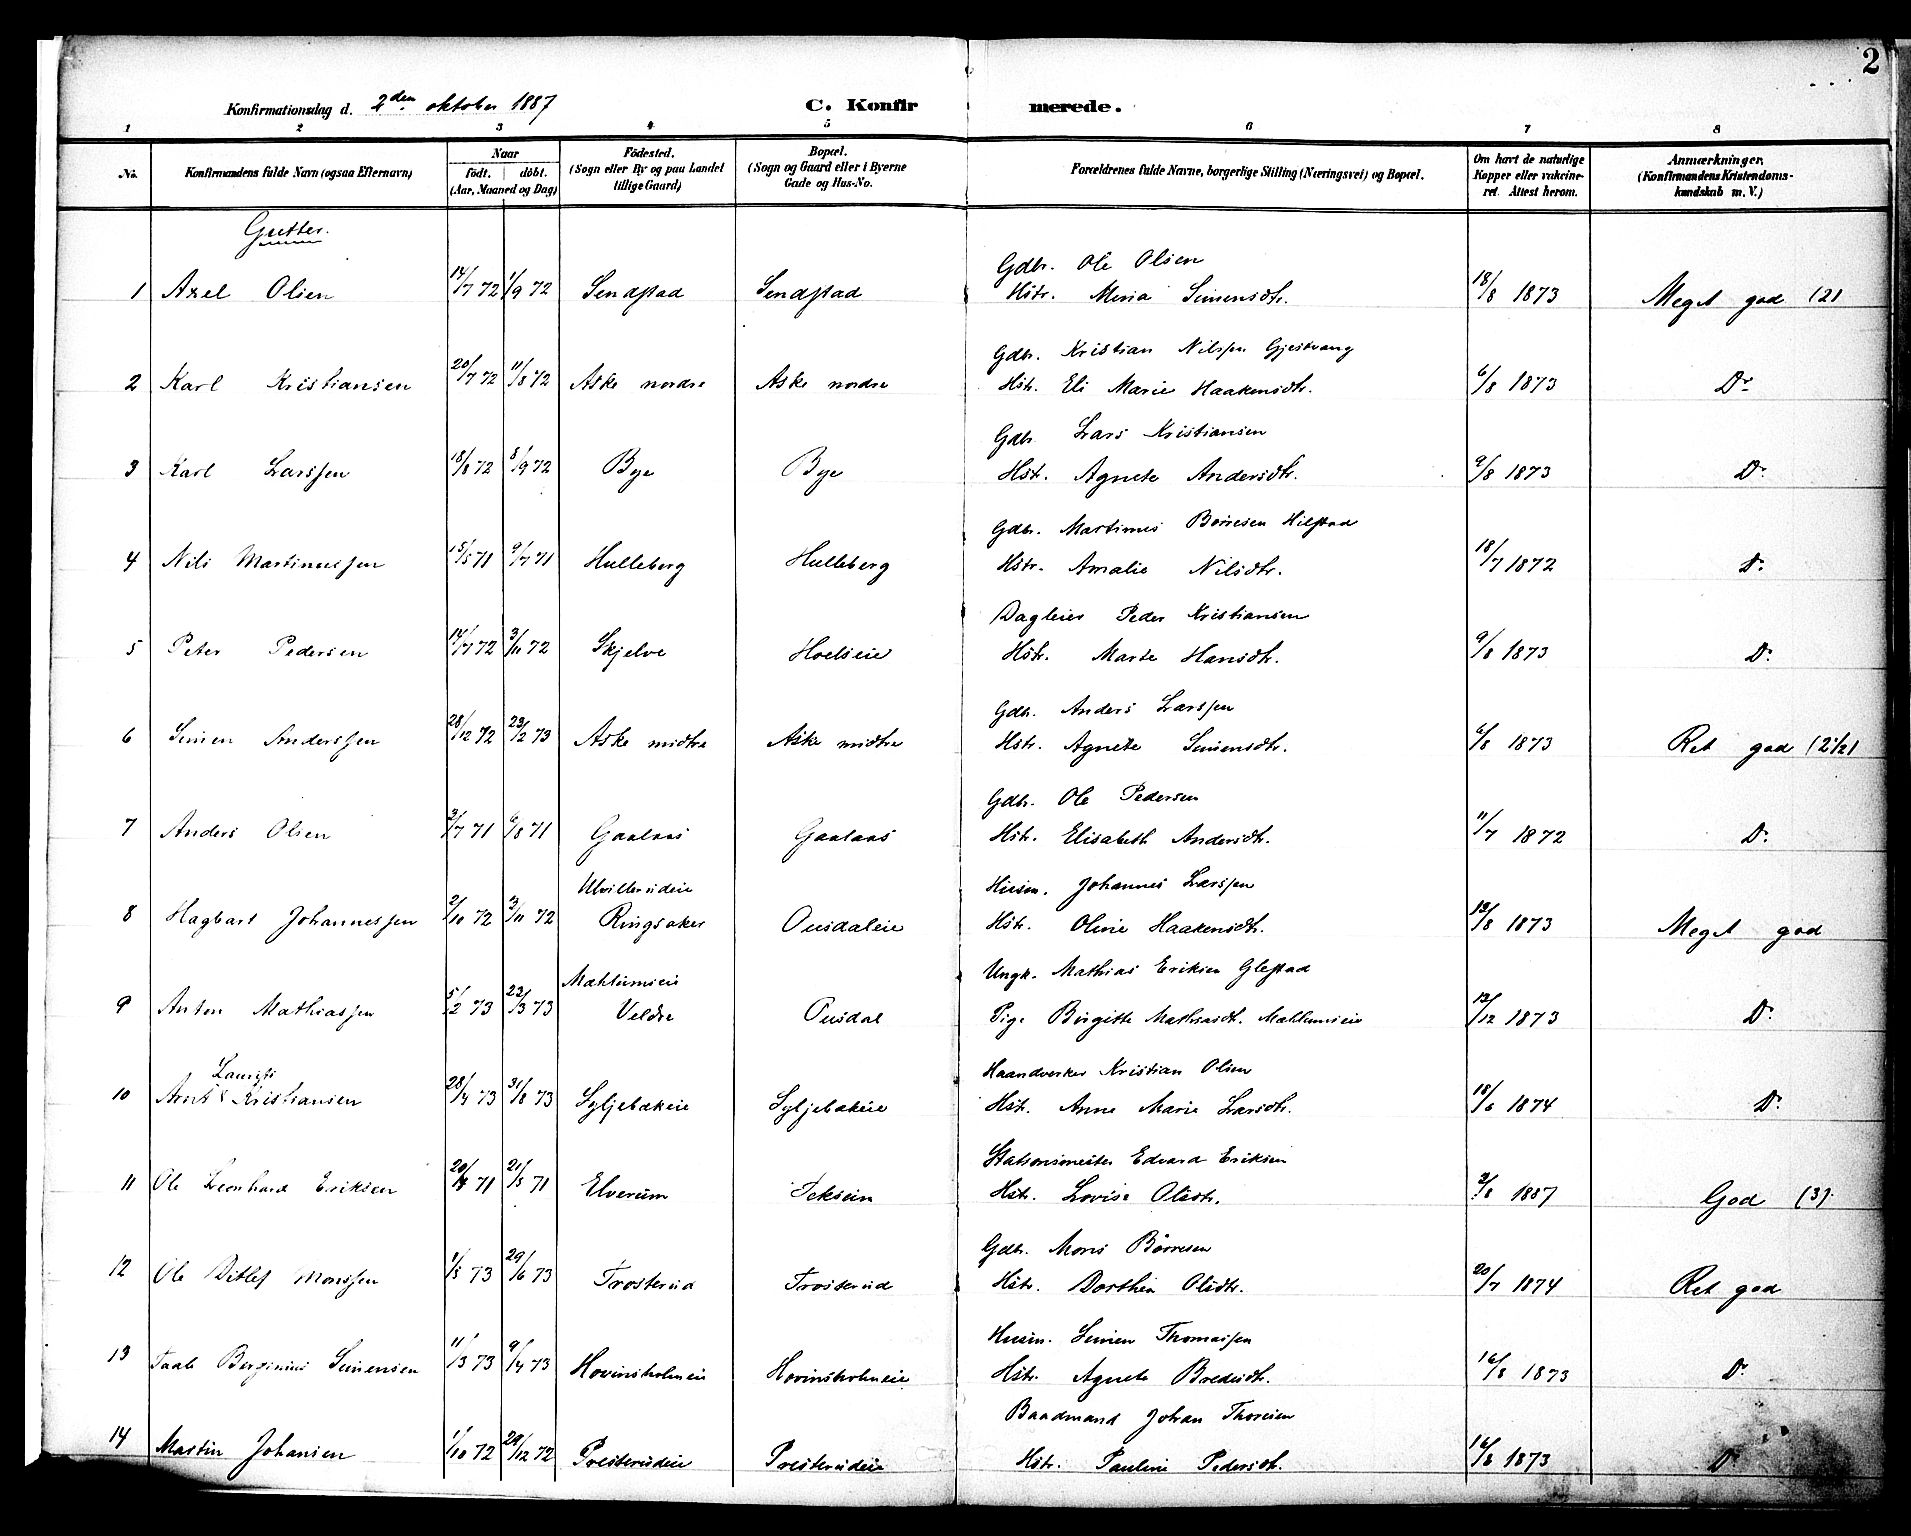 2
Konfirmationsdag d. 2den oktober 1887 C. Konfirmerede.
1 2 3 4 5 6 7 8
No. Konfirmandens fulde Navn (ogsaa Efternavn) Naar født. døbt. (Aar, Maaned og Dag) Fødested. (Sogn eller By og paa Landet tillige Gaard) Bopæl. (Sogn og Gaard eller i Byerne Gade og Hus-No. Forældrenes fulde Navne, borgerlige Stilling (Næringsvei) og Bopæl. Om havt de naturlige Kopper eller vakcineret. Attest herom. Anmærkninger. (Konfirmandens Kristendomskundskab m. V.)
Gutter.
Gdbr. Ole Olsen
1 Axel Olsen 14/7 72 1/9 72 Sendstad Sendstad Hstr. Maria Simensdtr. 18/8 1873 Meget god (2)
Gdbr. Kristian Nilssen Gjestvang
2 Karl Kristiansen 20/7 72 11/8 72 Aske nordre Aske nordre Hstr. Eli Marie Haakensdtr. 6/8 1873 Do
Gdbr. Lars Kristiansen
3 Karl Larssen 18/8 72 8/9 72 Bye Bye Hstr. Agnete Andersdtr. 9/8 1873 Do
Gdbr. Martinus Børresen Hilstad
4 Nils Martinussen 15/5 71 9/7 71 Hulleberg Hulleberg Hstr. Amalie Nilsdtr. 18/7 1872 Do
Dagleier Peder Kristiansen
5 Peter Pedersen 14/7 72 3/11 72 Skjelve Hoelseie Hstr. Marte Hansdtr. 9/8 1873 Do
Gdbr. Anders Larssen
6 Simen Anderssen 28/12 72 23/2 73 Aske midtre Aske midtre Hstr. Agnete Simensdtr. 6/8 1873 Ret god (2 1/2)
Gdbr. Ole Pedersen
7 Anders Olsen 2/7 71 6/8 71 Gaalaas Gaalaas Hstr. Elisabeth Andersdtr. 11/7 1872 Do
Husm. Johannes Larssen
8 Hagbart Johannessen 2/10 72 3/11 72 Ringsaker Ousdaleie Hstr. Oline Haakensdtr. 13/8 1873 Meget god
Mæhlumseie Ungk. Mathias Eriksen Glestad
9 Anton Mathiassen 5/2 73 23/3 73 Veldre Ousdal Pige Birgitte Mathiasdtr. Mæhlumseie 13/12 1873 Do
Laurits Haandverker Kristian Olsen
10 Arnt Kristiansen 28/4 73 31/8 73 Syljebækeie Syljebækeie Hstr. Anne Marie Larsdtr. 18/6 1874 Do
Stationsmester Edvard Eriksen
11 Ole Leonhard Eriksen 71 21/5 71 Elverum Hstr. Lovise Olsdtr. 2/8 1887 God (3)
Gdbr. Mons Børresen
12 Ole Ditlef Monssen 1/5 73 29/6 73 Trosterud Trosterud Hstr. Dorthea Olsdtr. 20/7 1874 Ret god
Husm. Simen Thomassen
13 Berginius Simensen 11/3 73 9/4 73 Hovinsholmeie Hovinsholmeie Hstr. Agnete Bredesdtr. 16/8 1873 Do
Baadmand Johan Thoresen
14 Martin Johansen 1/10 72 29/12 72 Presterudeie Presterudeie Hstr. Pauline Pedersdt. 16/8 1873 Do